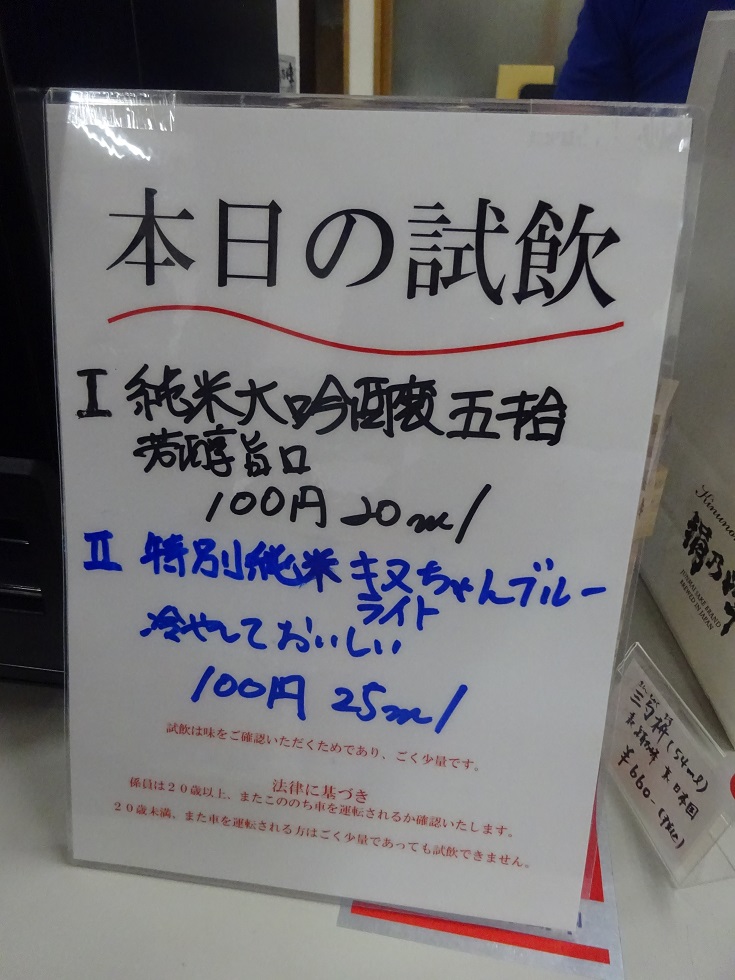 本日の試飲
I 純米大吟醸 五拾
芳醇旨口
100円 20ml
II 特別純米 キヌちゃんブルー
ライト
冷やしておいしい
100円 25ml
試飲は味をご確認いただくためであり、ごく少量です。
法律に基づき
係員は20歳以上、またこののち車を運転されるか確認いたします。
20歳未満、また車を運転される方はごく少量であっても試飲できません。
絹乃峰
JUNMAI SAKE BRAND
BREWED IN JAPAN
三勺枡(54ml)
日本国
¥660-